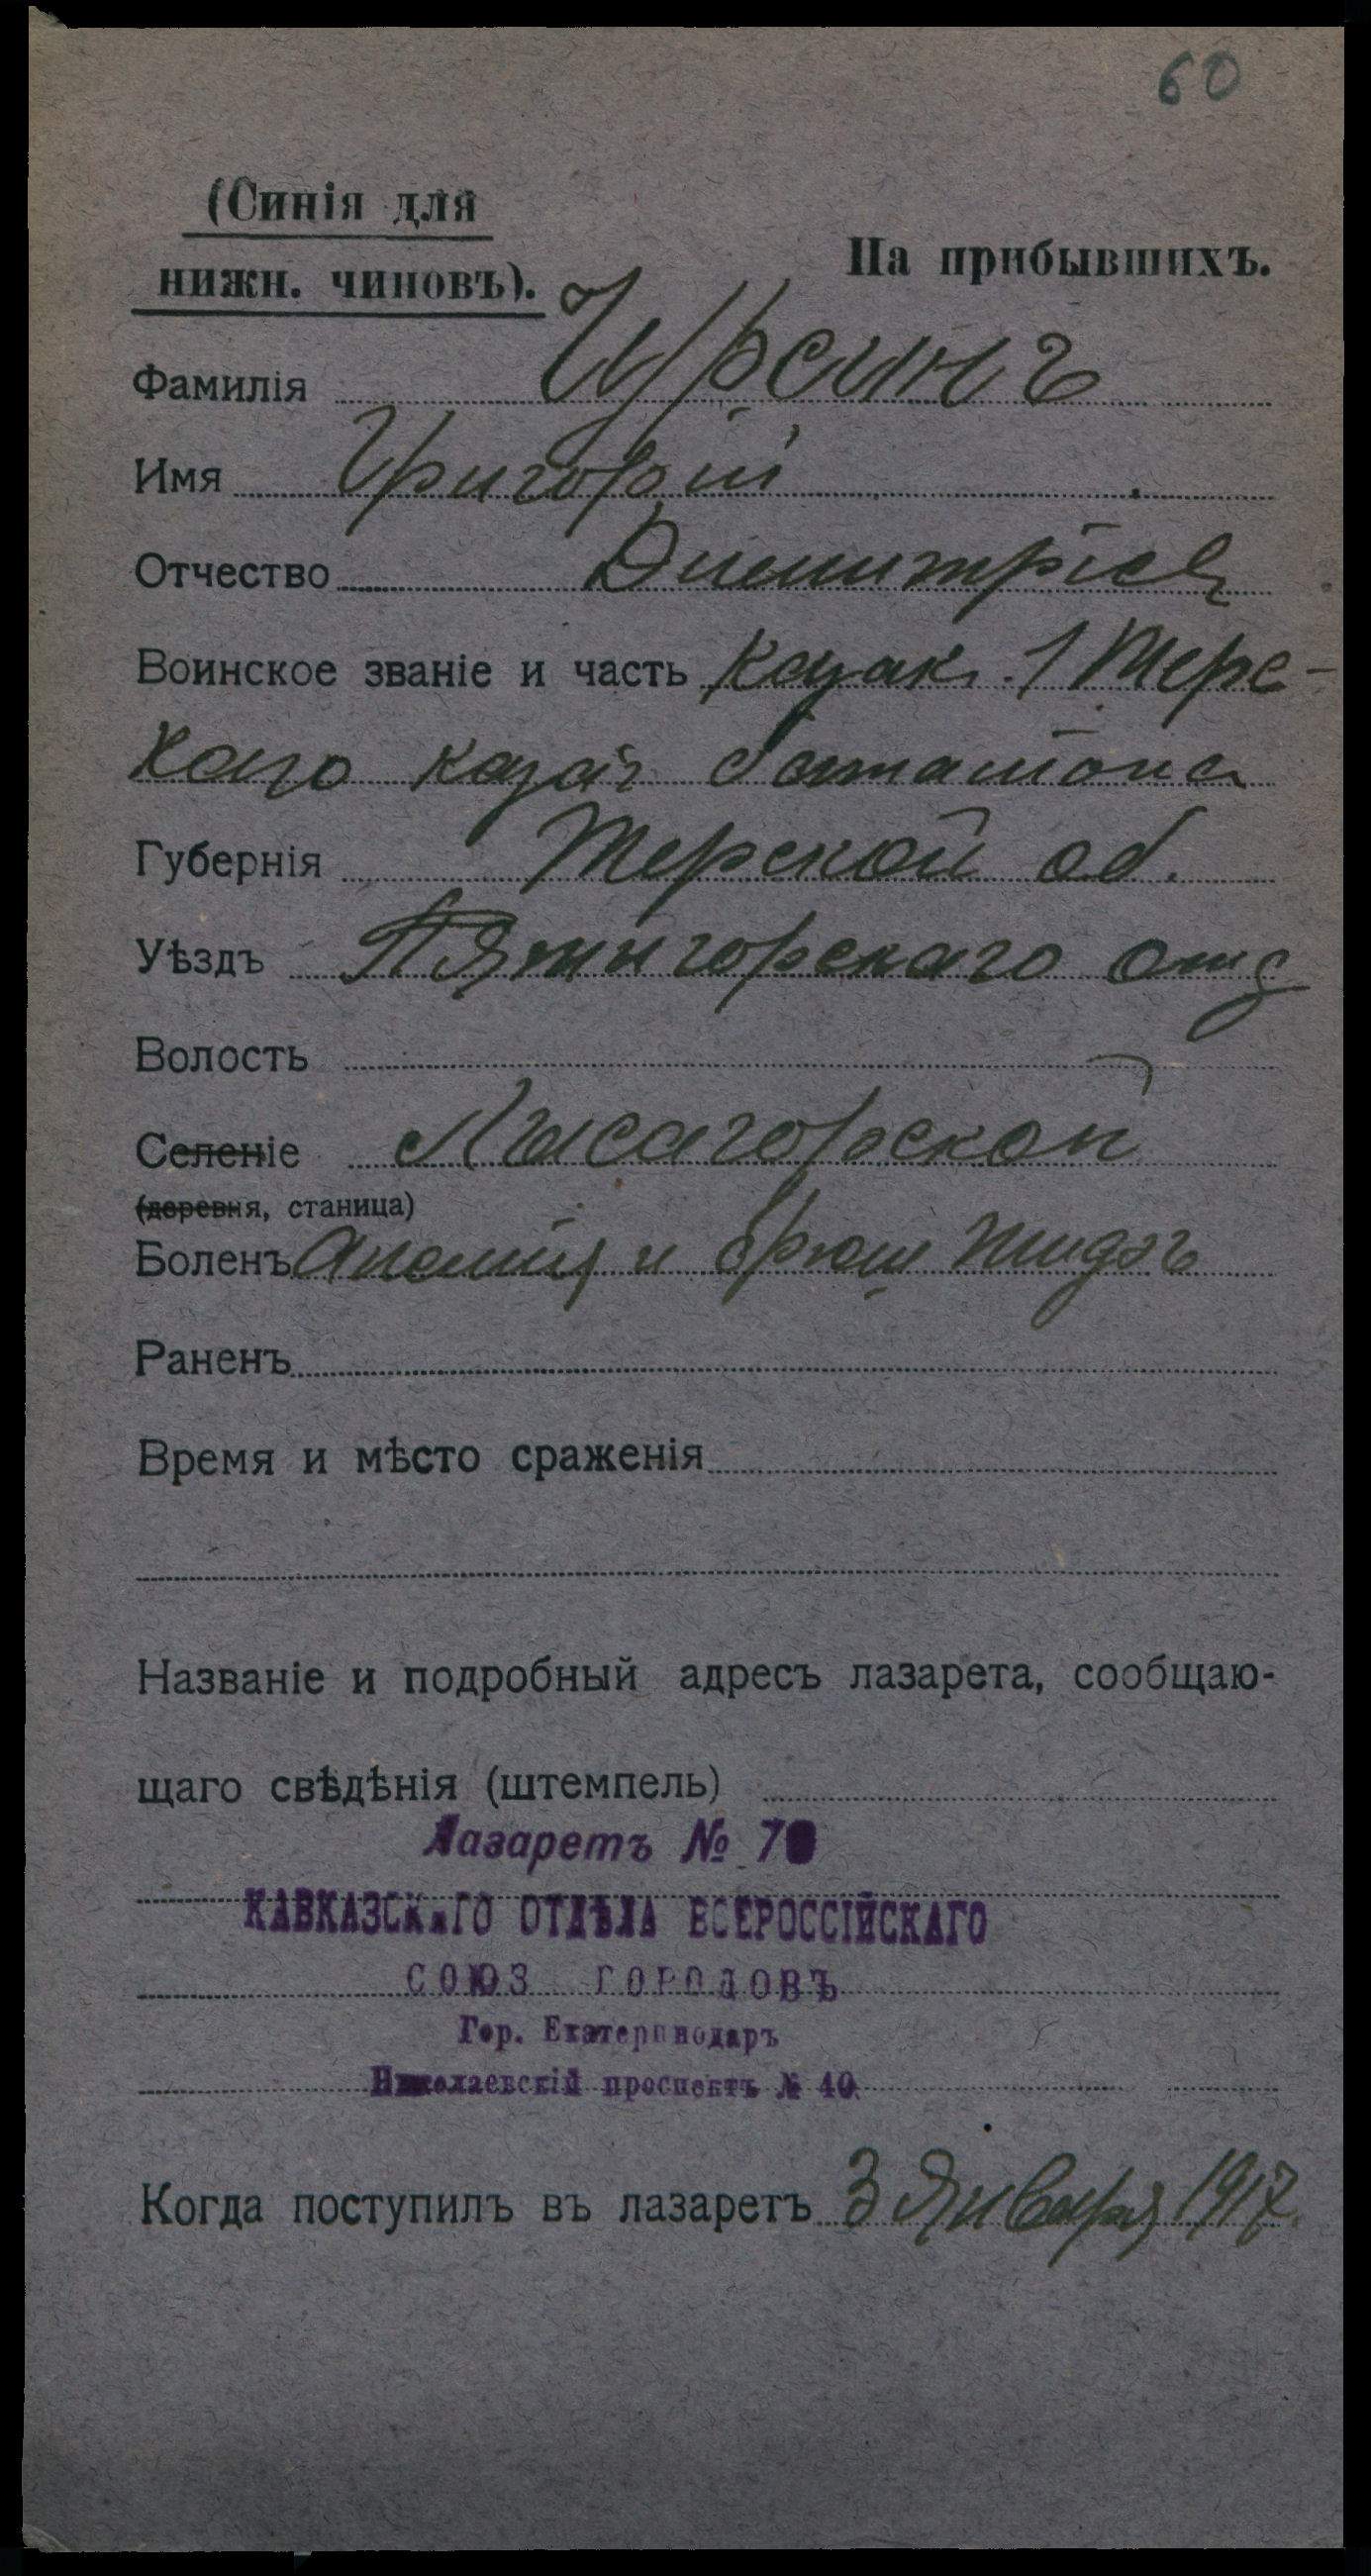 60
(Синія для
нижн. чиновъ).
На прибывшихъ.
Фамилія Ирсинъ
Имя Григорій
Отчество Дмемитріев
Воинское званіе и часть Козак. 1 Терс-
каго казач баталіона
Губернія Терской об.
Уѣздъ Пятигорскаго отд
Волость
Селеніе Лысагорской
(деревня, станица)
Боленъ Анемія и брюш тифъ
Раненъ
Время и мѣсто сраженія
Названіе и подробный адресъ лазарета, сообщаю-
щаго свѣдѣнія (штемпель)
Лазаретъ № 70
КАВКАЗСКАГО ОТДѢЛА ВСЕРОССІЙСКАГО
СОЮЗ ГОРОДОВЪ
Гор. Екатеринодаръ
Николаевскій проспектъ № 40.
Когда поступилъ въ лазаретъ 3 Января 1917.